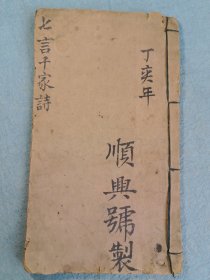 丁亥年
順興號製
七言千家詩